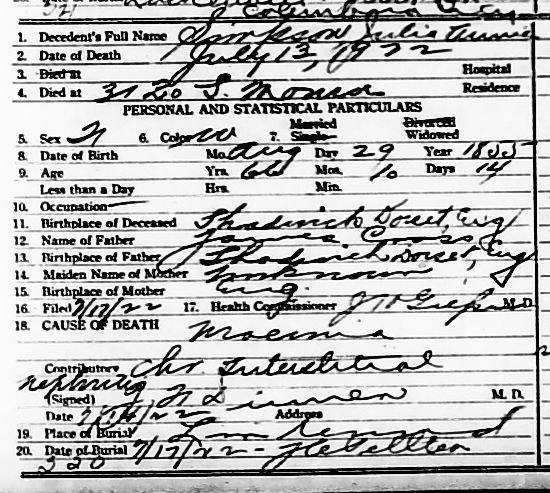 1. Decedent's Full Name Simpson Julia Annie
2. Date of Death July 13, 1922
3. Died at Hospital
4. Died at 3120 S. Residence
PERSONAL AND STATISTICAL PARTICULARS
Married Divorced
5. Sex F 6. Color W 7. Single Widowed
8. Date of Birth Mo. Aug Day 29 Year 1855
9. Age Yrs. 66 Mos. 10 Days 14
Less than a Day Hrs. Min.
10. Occupation —
11. Birthplace of Deceased Dorset, Eng
12. Name of Father James Cross
13. Birthplace of Father Dorset, Eng
14. Maiden Name of Mother Unknown
15. Birthplace of Mother Eng.
16. Filed 7/17/22 17. Health Commissioner M.D.
18. CAUSE OF DEATH Uraemia
Contributory Chr Interstitial
nephritis
(Signed) M. D.
Date 7/14/22 Address
19. Place of Burial
20. Date of Burial 7/17/22 -
320